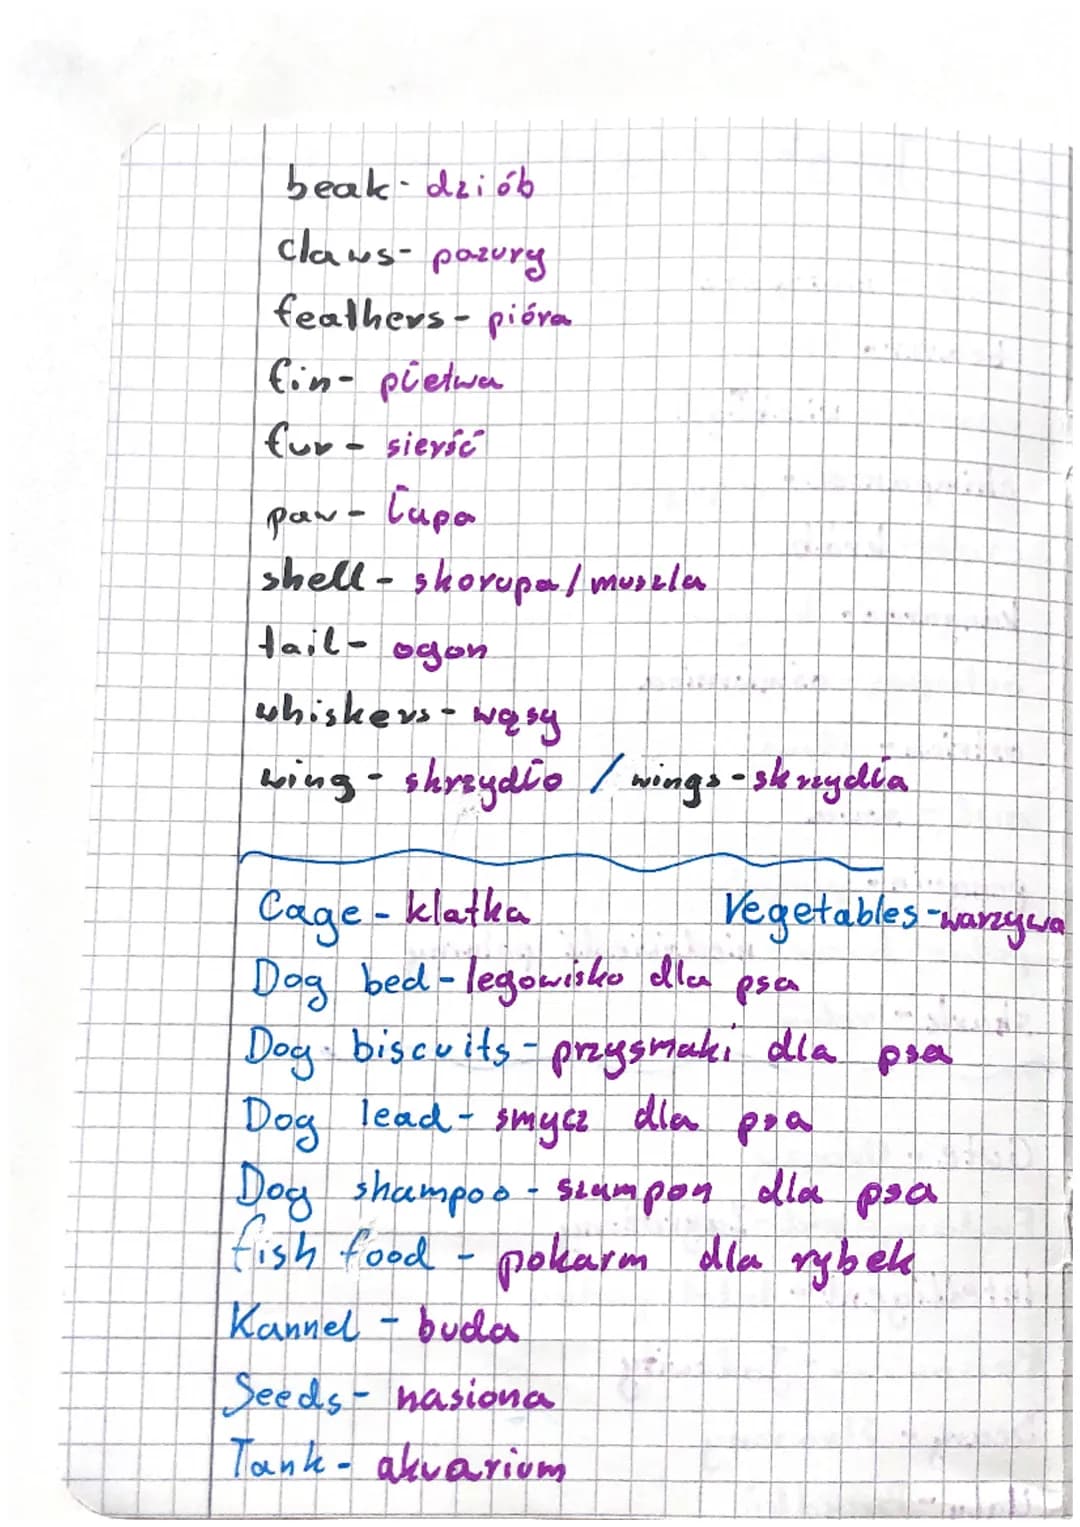 beak - dziób
claws - pazury
feathers - pióra
fin - płetwa
fur - sierść
paw - łapa
shell - skorupa / muszla
tail - ogon
whiskers - wąsy
wing - skrzydło / wings - skrzydła
Cage - klatka Vegetables - warzywa
Dog bed - legowisko dla psa
Dog biscuits - przysmaki dla psa
Dog lead - smycz dla psa
Dog shampoo - szampon dla psa
fish food - pokarm dla rybek
Kannel - buda
Seeds - nasiona
Tank - akwarium